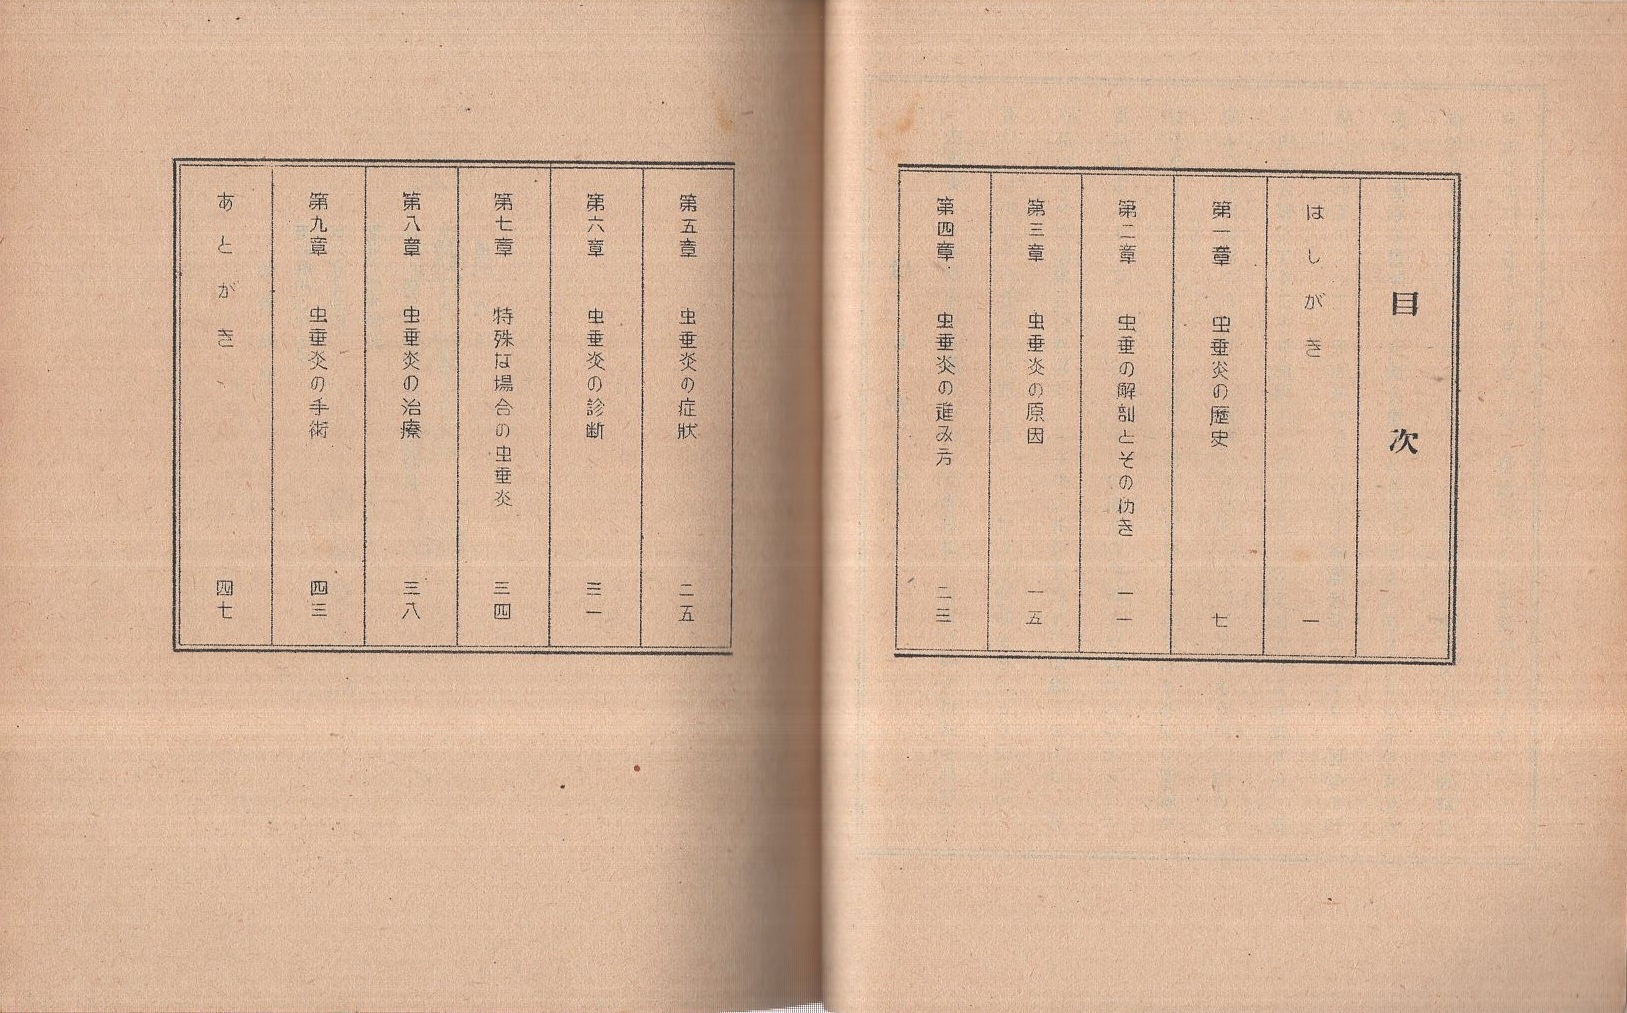 目次
はしがき 一
第一章 虫垂炎の歴史 七
第二章 虫垂の解剖とその仂き 一一
第三章 虫垂炎の原因 一五
第四章 虫垂炎の進み方 二三
第五章 虫垂炎の症狀 二五
第六章 虫垂炎の診断 三一
第七章 特殊な場合の虫垂炎 三四
第八章 虫垂炎の治療 三八
第九章 虫垂炎の手術 四三
あとがき 四七